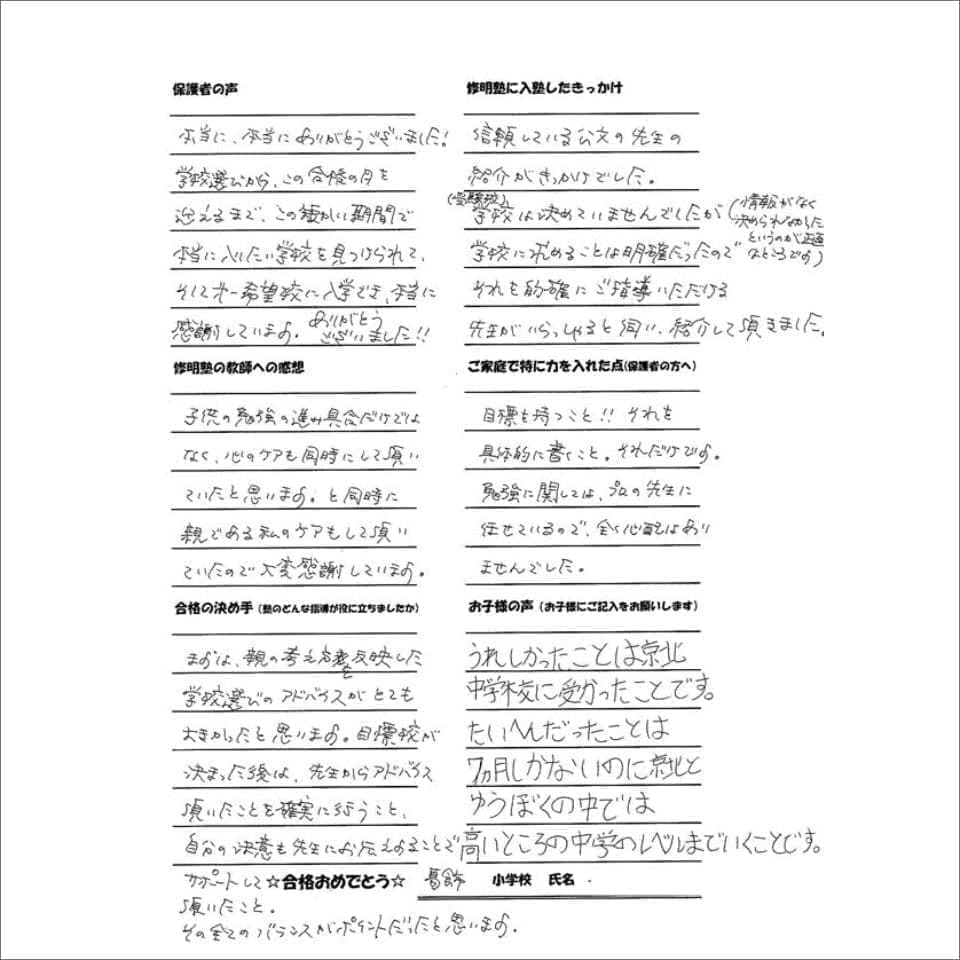 保護者の声
本当に、本当にありがとうございました!
学校選びから、この合格の月を
迎えるまで、この短かい期間で
本当に入いたい学校を見つけられて、
そして才一希望校に入学でき、本当に
感謝しています。ありがとう
ございました!!
修明塾の教師への感想
子供の勉強の進み具合だけでは
なく、心のケアも同時にして頂い
ていたと思います。と同時に
親である私のケアもして頂い
ていたので大変感謝しています。
合格の決め手(塾のどんな指導が役に立ちましたか)
まずは、親の考え方を反映した
学校選びのアドバイスがとても
大きかったと思います。目標校が
決まった後は、先生からアドバイス
頂いたことを確実に行うこと、
自分の決意も先生にお伝えすることで
サポートして
頂いたこと。
その全てのバランスがポイントだったと思います。
修明塾に入塾したきっかけ
信頼している公文の先生の
紹介がきっかけでした。
(受験校)
学校は決めていませんでしたが(情報がなく
決められなかった
というのが正直
なところです)
学校に求めることは明確だったので
それを的確にご指導いただける
先生がいらっしゃると伺い、紹介して頂きました。
ご家庭で特に力を入れた点(保護者の方へ)
目標を持つこと!! それを
具体的に書くこと。それだけです。
勉強に関しては、プロの先生に
任せているので、全く心配はあり
ませんでした。
お子様の声(お子様にご記入をお願いします)
うれしかったことは京北
中学校に受かったことです。
たいへんだったことは
7ヵ月しかないのに京北と
ゆうぼくの中では
高いところの中学のレベルまでいくことです。
☆合格おめでとう☆ 葛飾 小学校 氏名